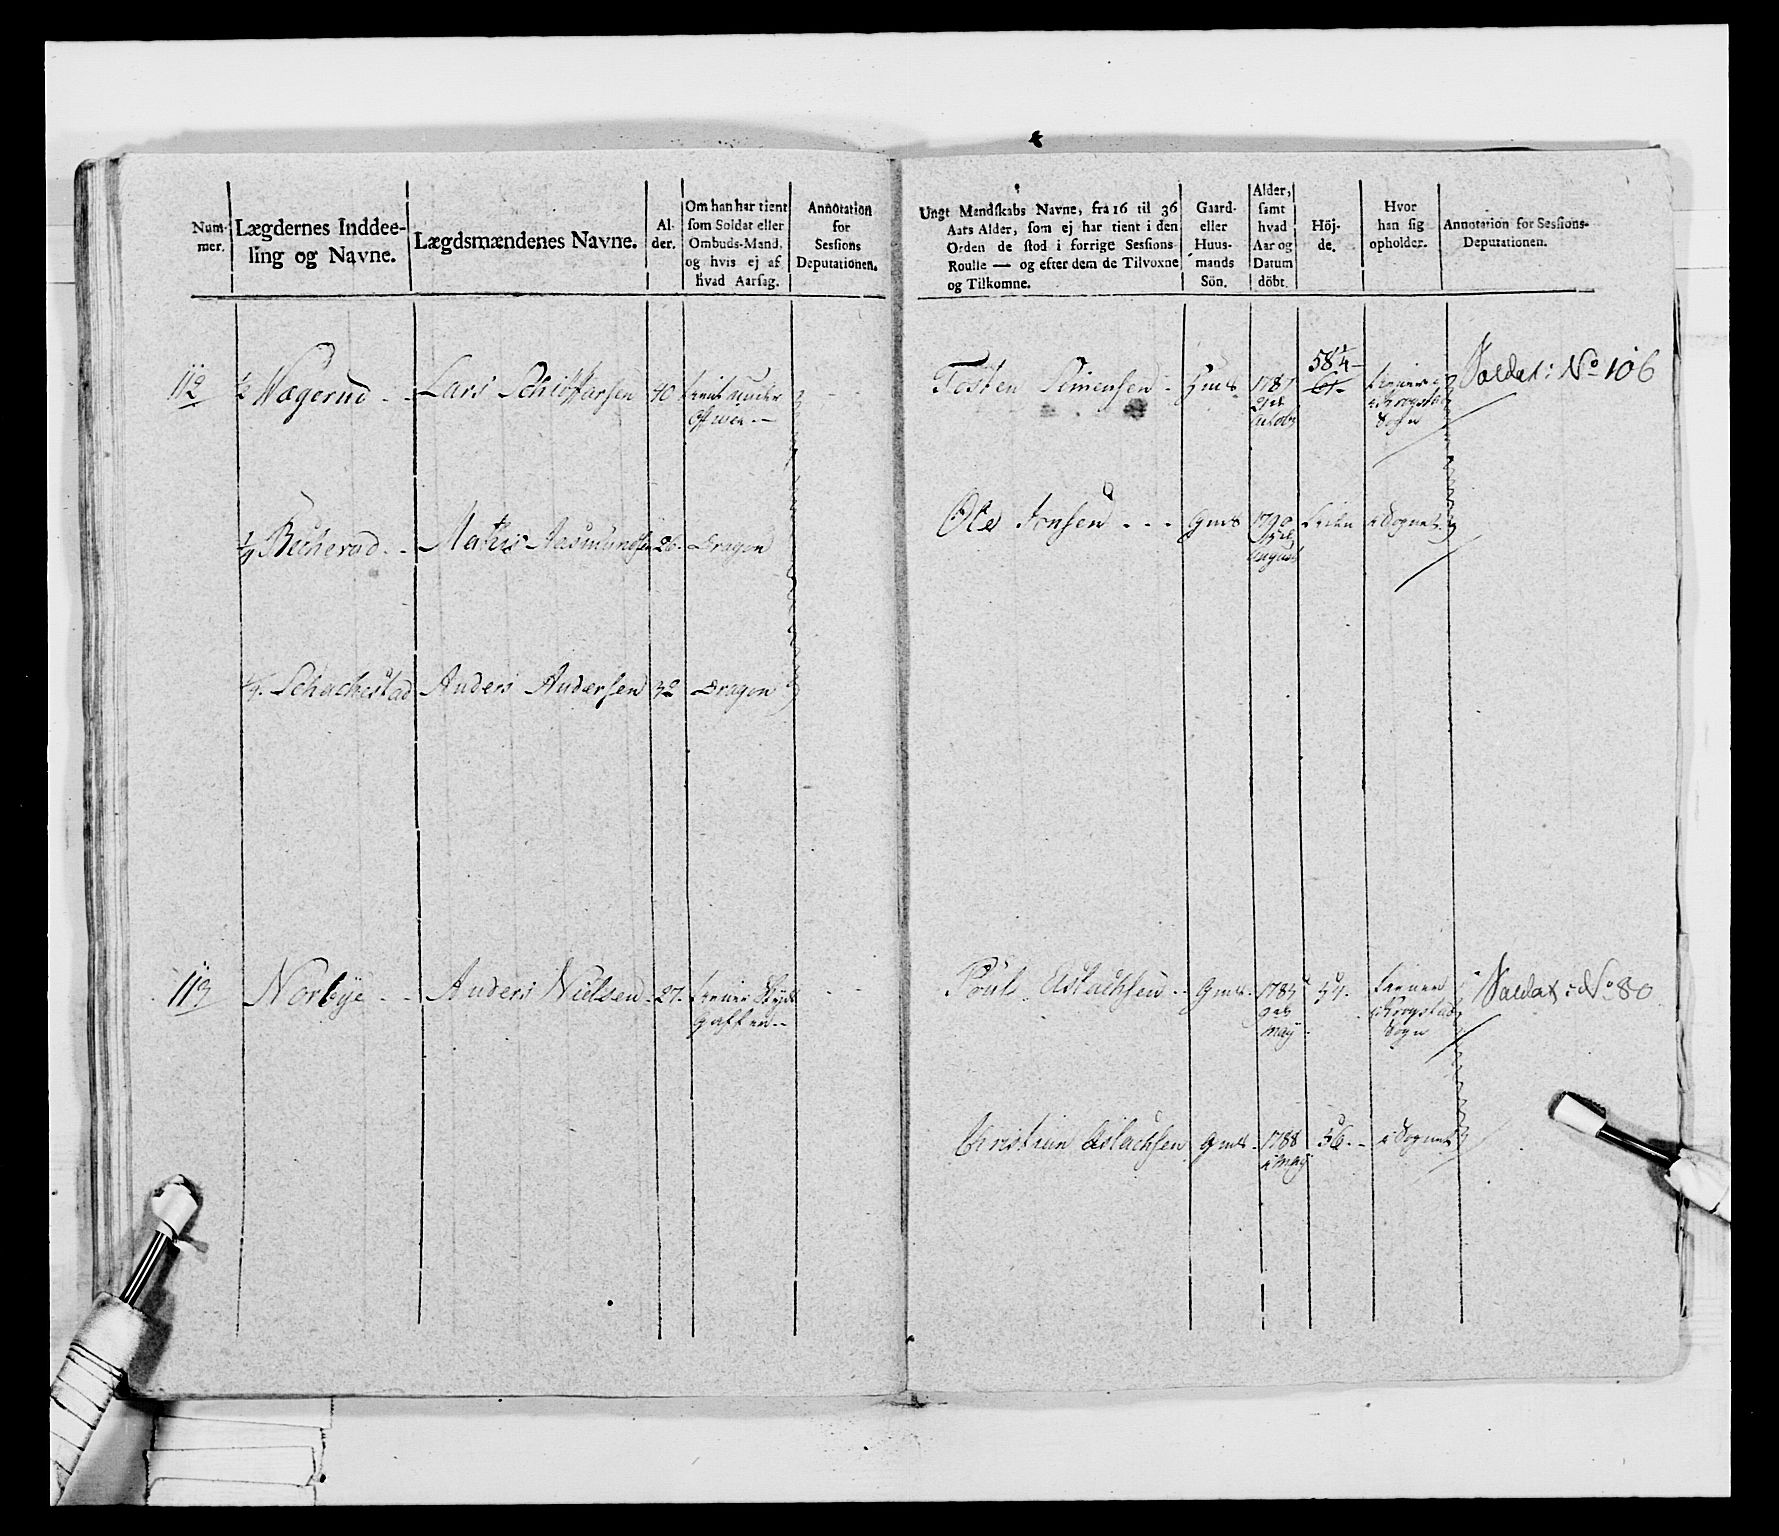 Num-
mer.
Lægdernes Inddee-
ling og Navne.
Lægdsmændenes Navne.
Al-
der.
Om han har tient
som Soldat eller
Ombuds-Mand,
og hvis ej af
hvad Aarsag.
Annotation
for
Sessions
Deputationen.
112
1/2 Nægerud - -
Lars
40
1/4 Becherud - -
Mathis Aasmundsen
26.
Dragon
1/4 Schachestad
Anders Andersen
32
Dragon
113
Norbye - -
Anders Nielsen
27.
Ungt Mandskabs Navne, fra 16 til 36
Aars Alder, som ej har tient i den
Orden de stod i forrige Sessions-
Roulle — og efter dem de Tilvoxne
og Tilkomne.
Gaard-
eller
Huus-
mands
Sön.
Alder,
samt
hvad
Aar og
Datum
döbt.
Höj-
de.
Hvor
han sig
opholder.
Annotation for Sessions-
Deputationen.
Tosten Simensen -
1787
58 1/4
tiener
i Krogstad
Sogn
Soldat: No 106
Ole Jonsen - - -
Gms
1790
August
i Sognet
Poul Aslachsen - -
Gms -
1785
May
54.
tiener
i Krogstad
Sogn
Soldat: No 80
Christian Aslachsen
Gms -
1788
i May
56. -
i Sognet